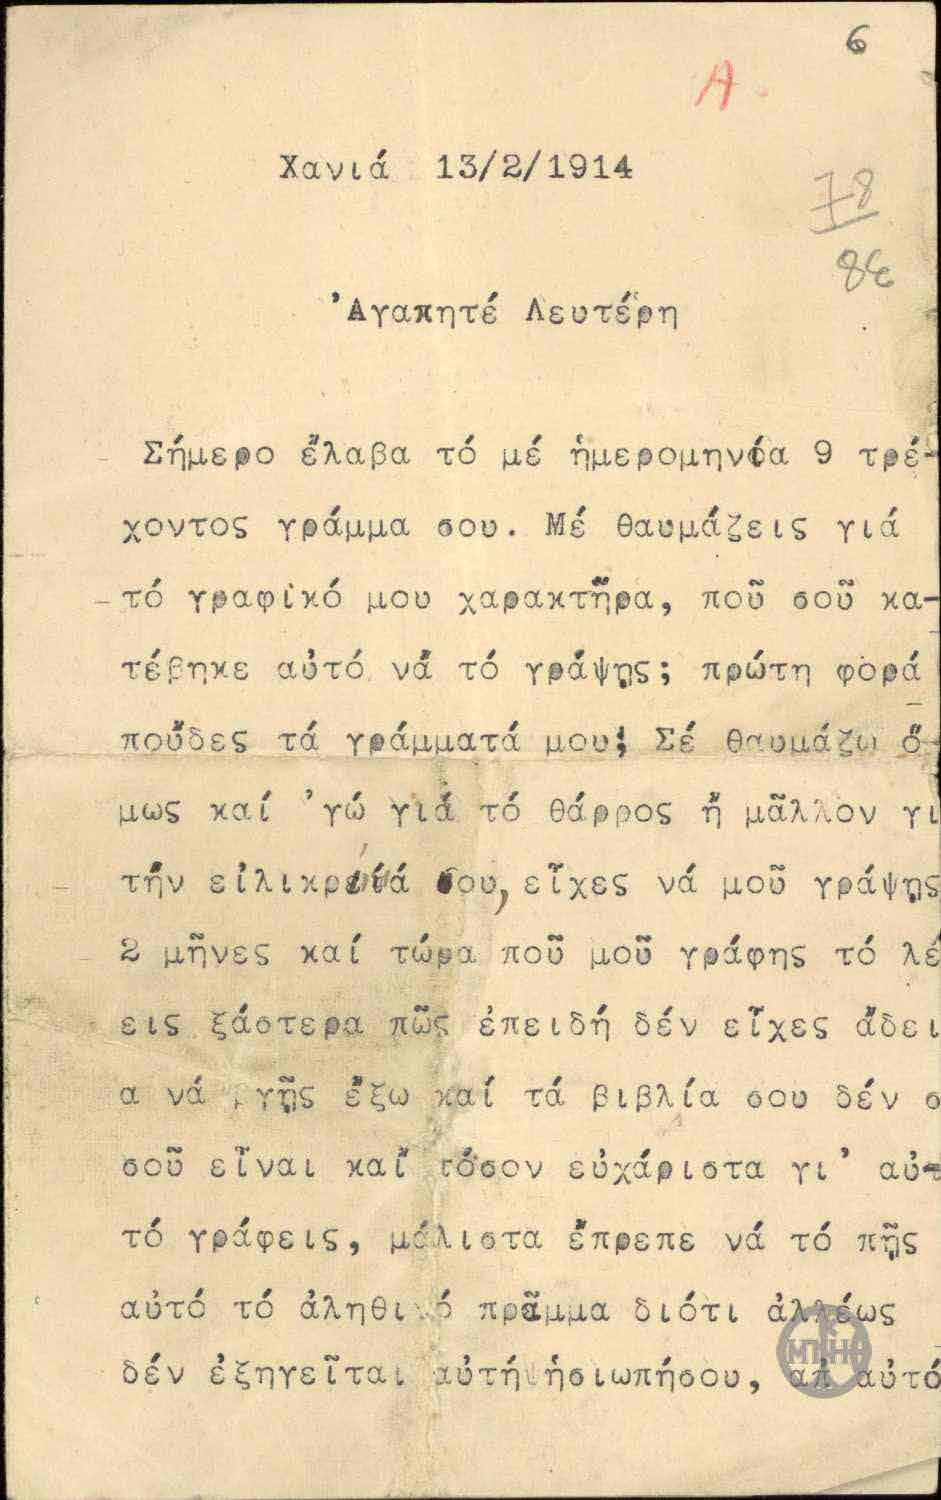 6
Α.
Χανιά 13/2/1914
78
86
'Αγαπητέ Λευτέρη
Σήμερο ἔλαβα τό μέ ἡμερομηνία 9 τρέ-
χοντος γράμμα σου. Μέ θαυμάζεις γιά
τό γραφικό μου χαρακτῆρα, ποῦ σοῦ κα-
τέβηκε αὐτό νά τό γράψῃς; πρώτη φορά
ποὖδες τά γράμματά μου; Σέ θαυμάζω ὅ-
μως καί 'γώ γιά τό θάρρος ἤ μᾶλλον γι
τήν εἰλικρινά σου, εἶχες νά μοῦ γράψῃς
2 μῆνες καί τώρα ποῦ μοῦ γράφης τό λέ
εις ξάστερα πῶς ἐπειδή δέν εἶχες ἄδει
α νά βγῇς ἔξω καί τά βιβλία σου δέν σ
σοῦ εἶναι καί τόσον εὐχάριστα γι' αὐτ
τό γράφεις, μάλιστα ἔπρεπε νά τό πῇς
αὐτό τό ἀληθινό πρᾶμμα διότι ἀλλέως
δέν ἐξηγεῖται αὐτή ἡσιωπήσου, ἀπ αὐτό
ΜΠΗ